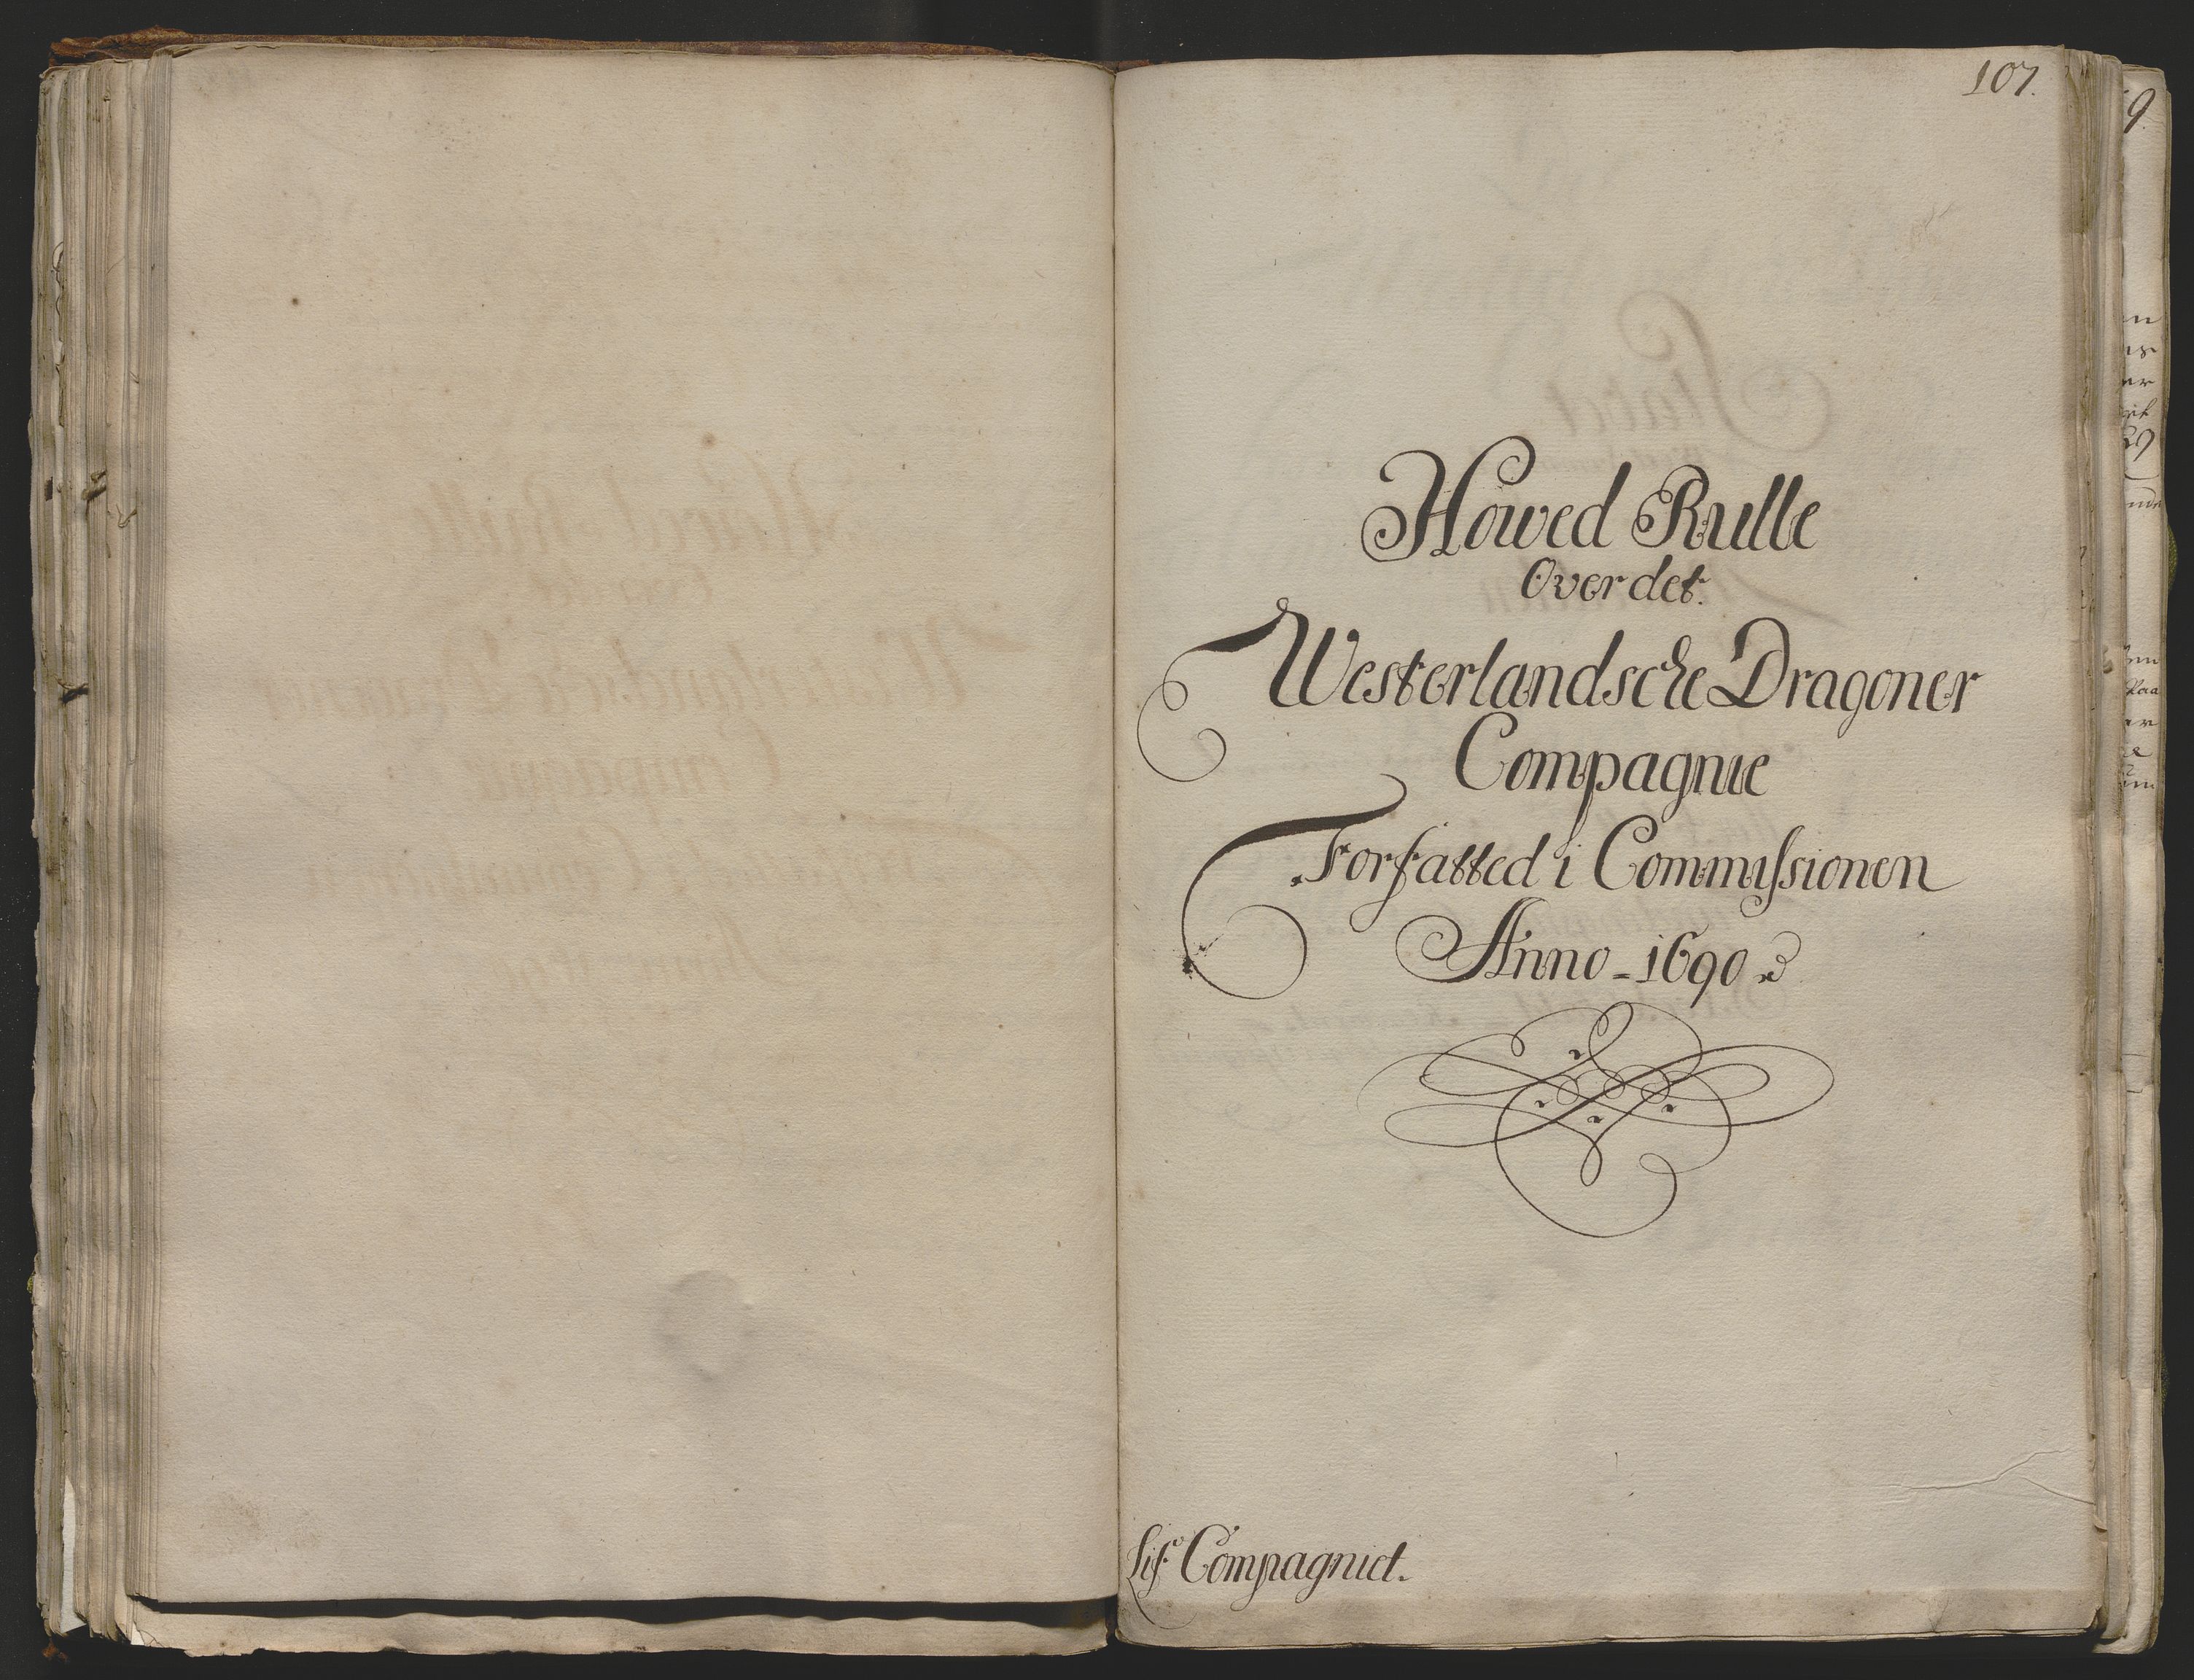 107.
Howed Rulle
Over det.
Westerlandsche Dragoner
Compagnie
Forfatted i Commissionen
Anno - 1690
Lif Compagniet.